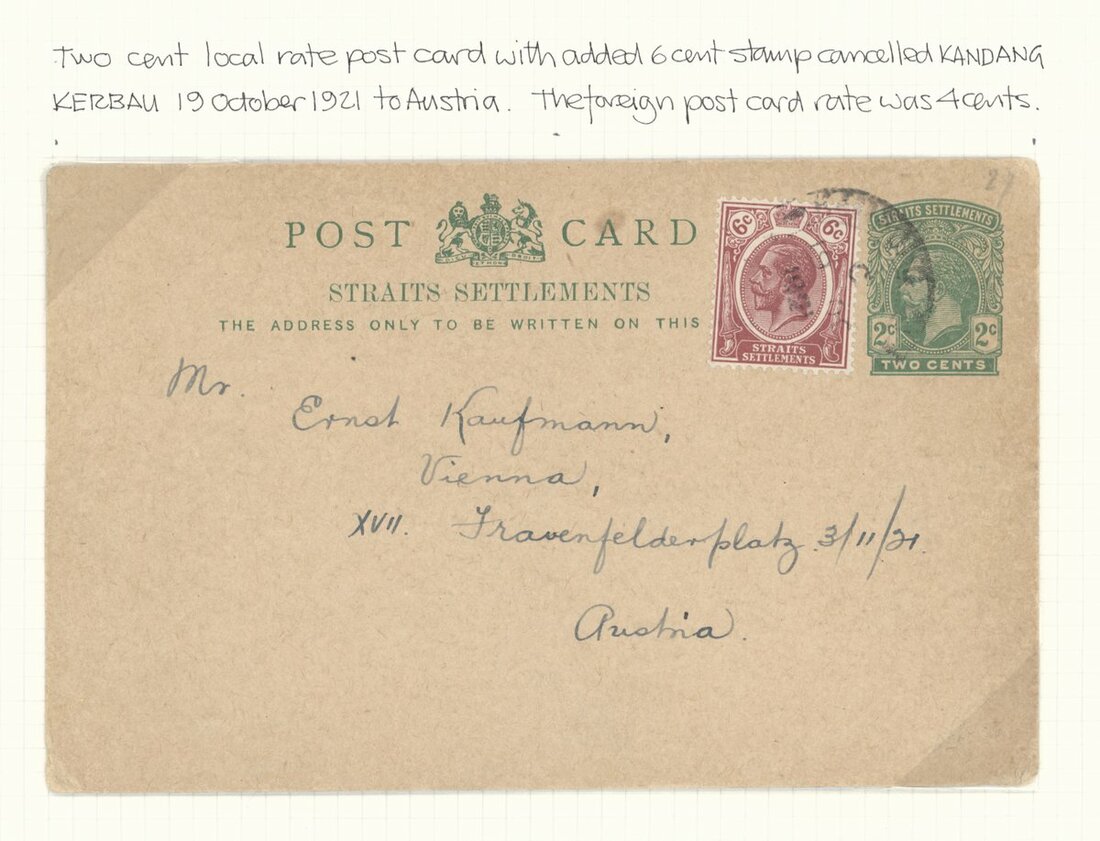 Two cent local rate post card with added 6 cent stamp cancelled KANDANG
KERBAU 19 October 1921 to Austria. The foreign post card rate was 4 cents.
27
POST CARD
STRAITS SETTLEMENTS
THE ADDRESS ONLY TO BE WRITTEN ON THIS
6c 6c
STRAITS
SETTLEMENTS
STRAITS SETTLEMENTS
2c 2c
TWO CENTS
1921
Mr.
Ernst Kaufmann,
Vienna,
XVII. Fravenfelderplatz 3/11/21.
Austria.